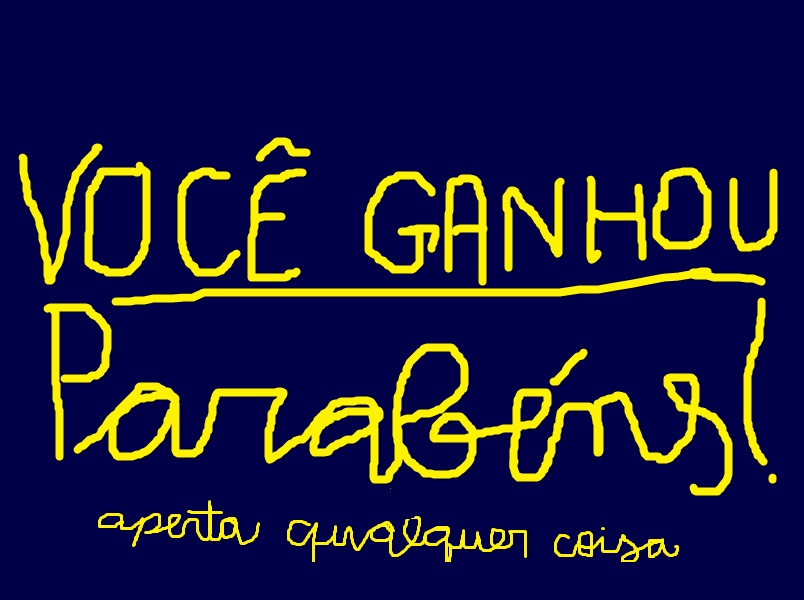 VOCÊ GANHOU
Parabéns!
aperta qualquer coisa